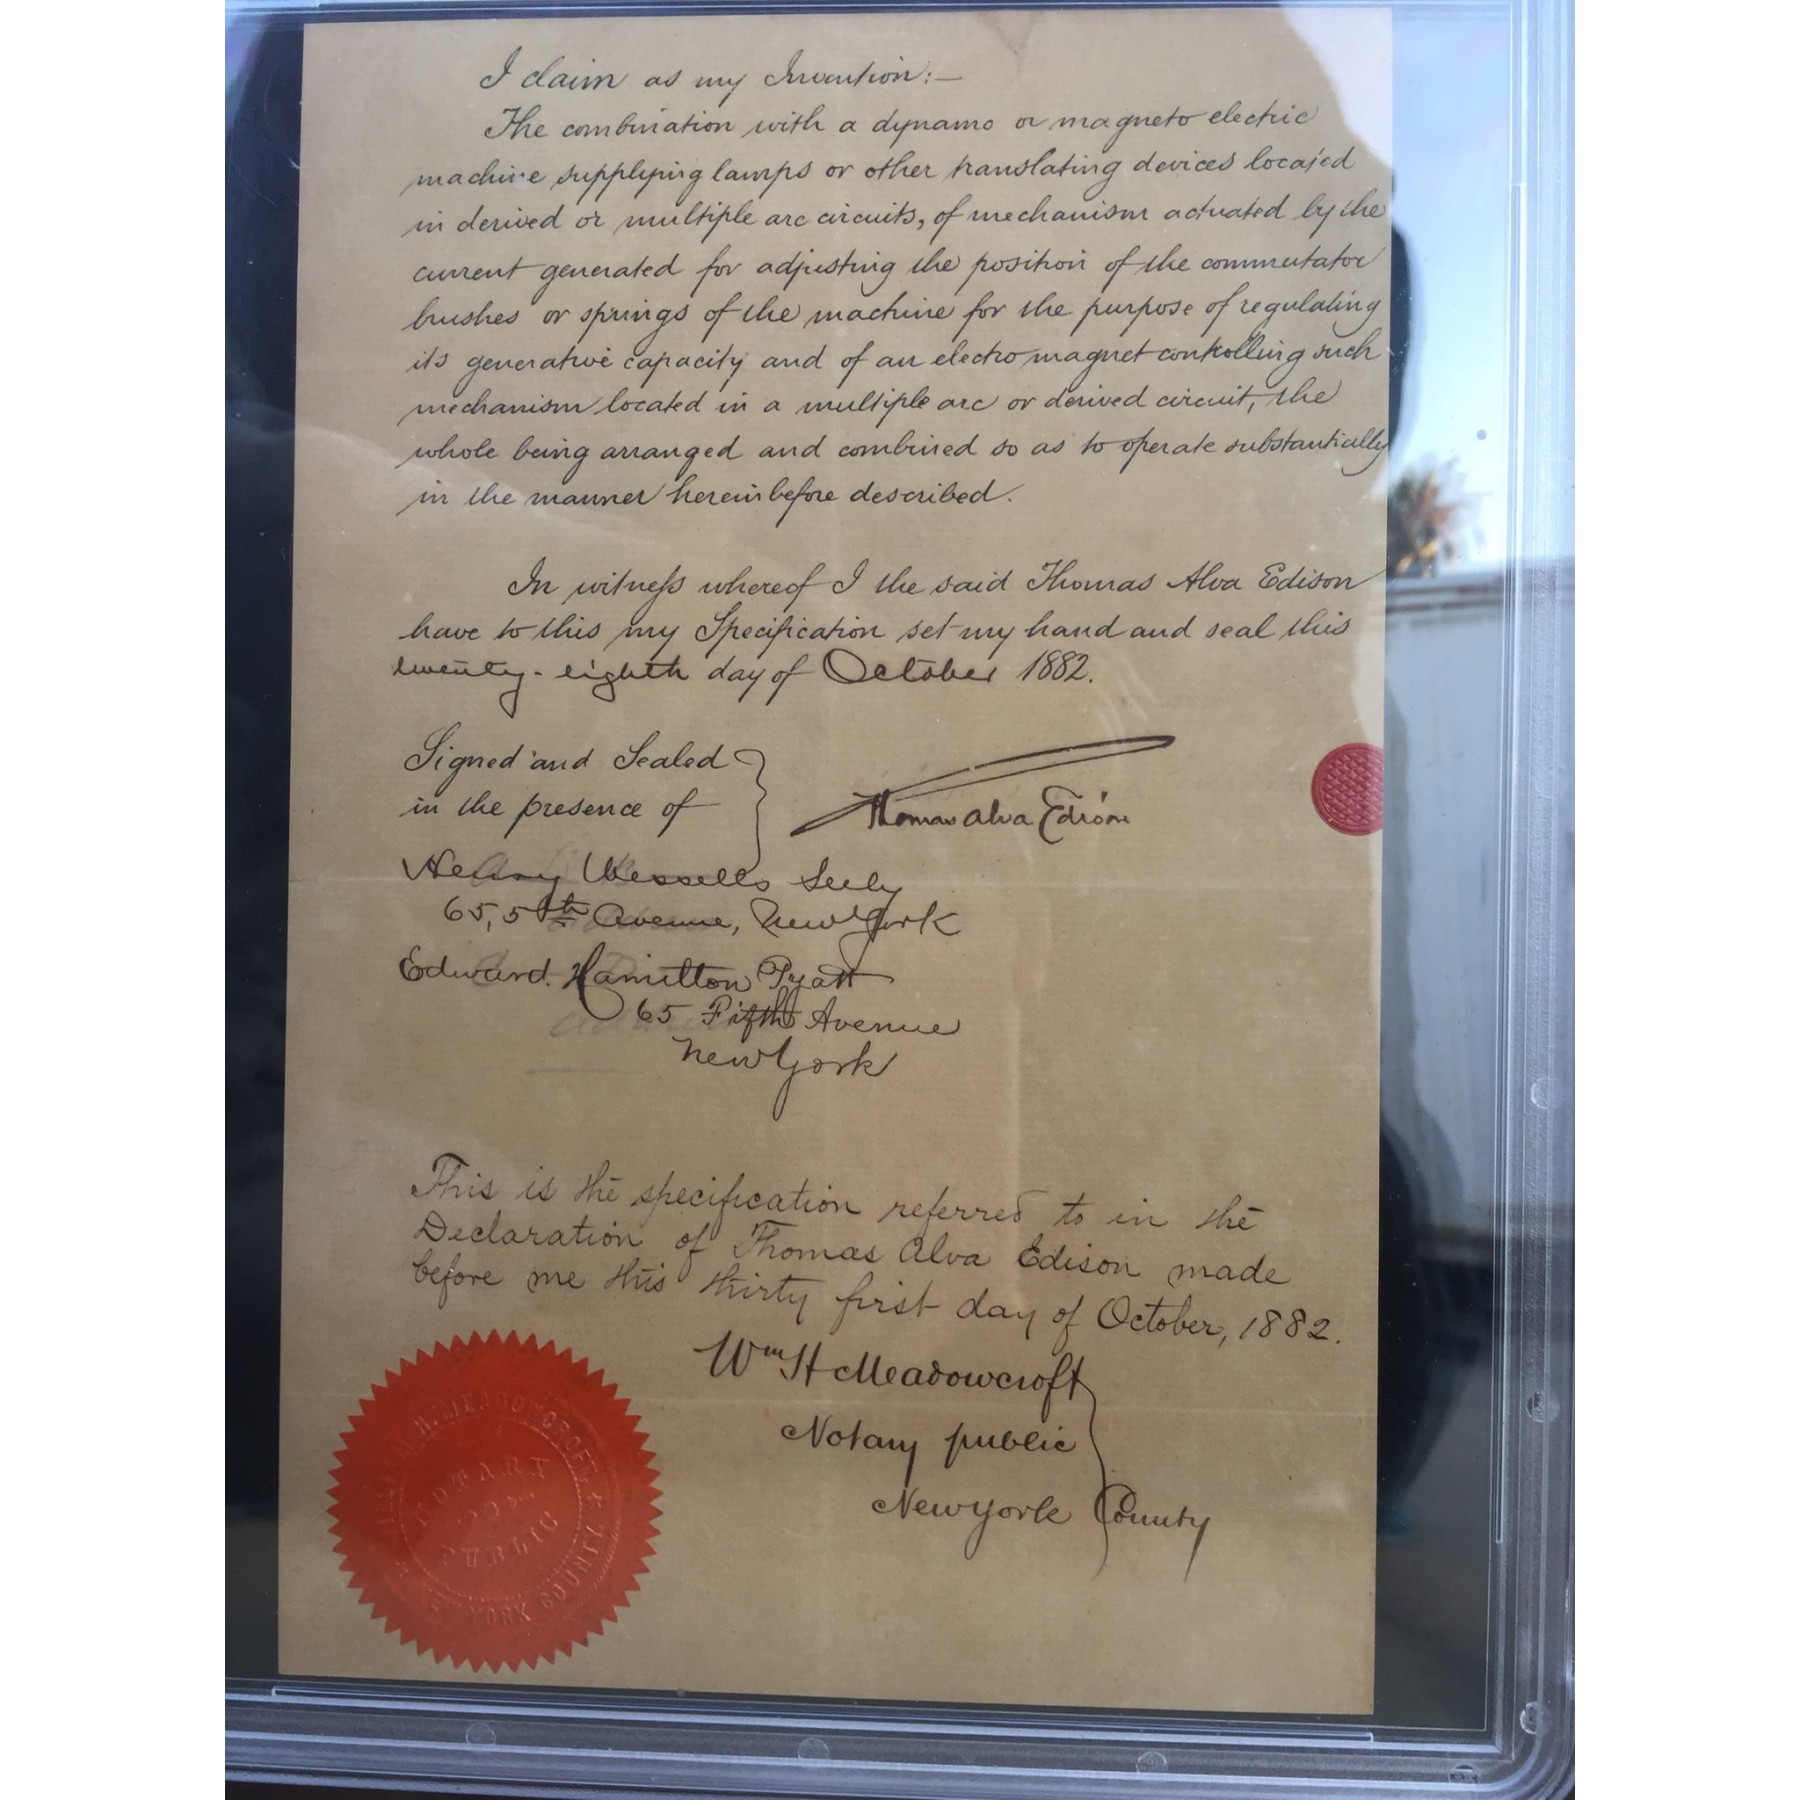 I claim as my Invention:—
The combination with a dynamo or magneto electric
machine supplying lamps or other translating devices located
in derived or multiple arc circuits, of mechanism actuated by the
current generated for adjusting the position of the commutator
brushes or springs of the machine for the purpose of regulating
its generative capacity and of an electro magnet controlling such
mechanism located in a multiple arc or derived circuit, the
whole being arranged and combined so as to operate substantially
in the manner hereinbefore described.
In witness whereof I the said Thomas Alva Edison
have to this my Specification set my hand and seal this
twenty-eighth day of October 1882.
Signed and Sealed
in the presence of
Thomas Alva Edison
Henry Wessells Seely
65, 5th Avenue, New York
Edward Hamilton Pyatt
65 Fifth Avenue
New York
This is the specification referred to in the
Declaration of Thomas Alva Edison made
before me this thirty first day of October, 1882.
Wm H Meadowcroft
Notary public
New York County
H. MEADOWCROFT
NOTARY
PUBLIC
YORK COUNTY